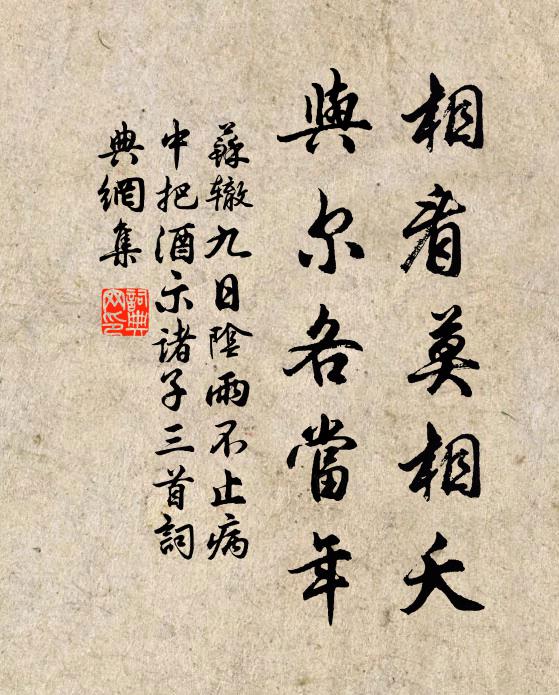 相看莫相夭
與尔各當年
蘇辙九日陰雨不止病
中把酒示諸子三首詞
典網集
詞典
网印